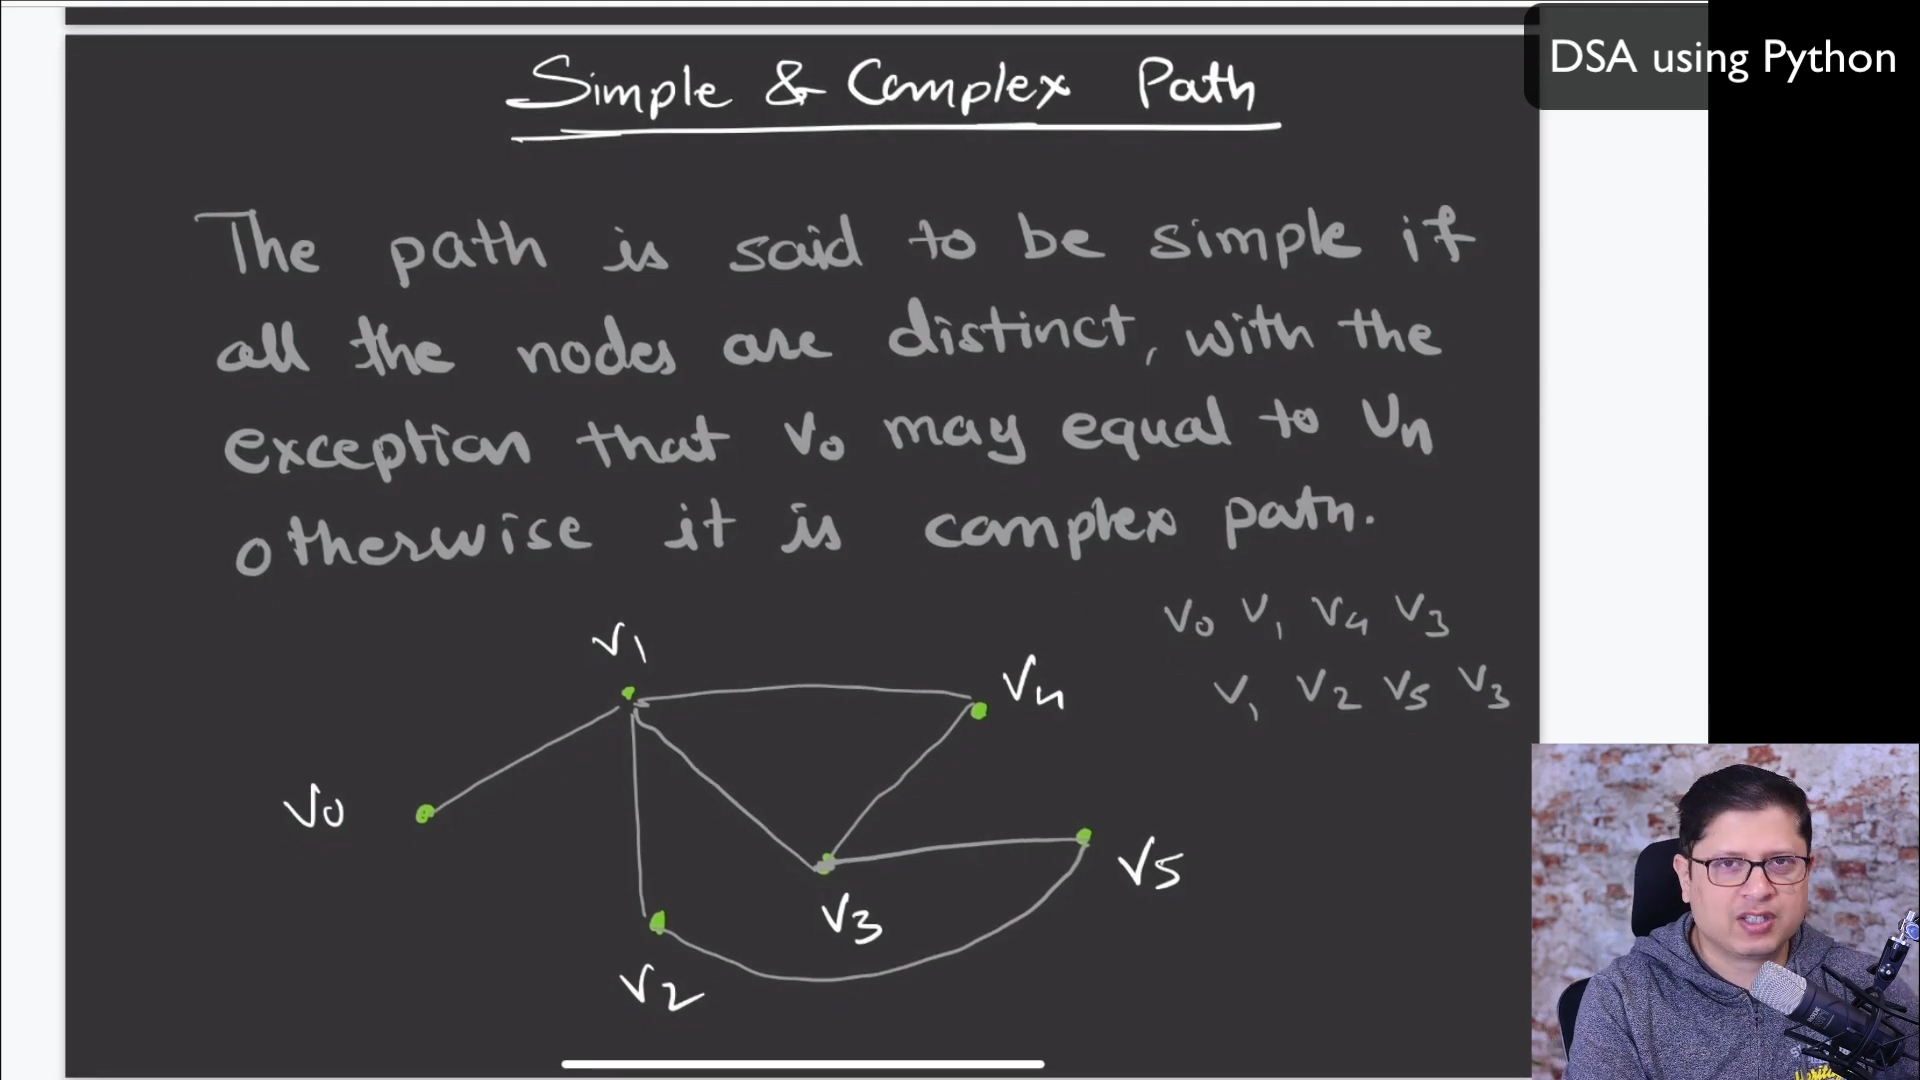 DSA using Python
Simple & Complex Path
The path is said to be simple if
all the nodes are distinct, with the
exception that V0 may equal to Vn
otherwise it is complex path.
V0 V1 V4 V3
V1 V2 V5 V3
V1
V4
V0
V5
V3
V2